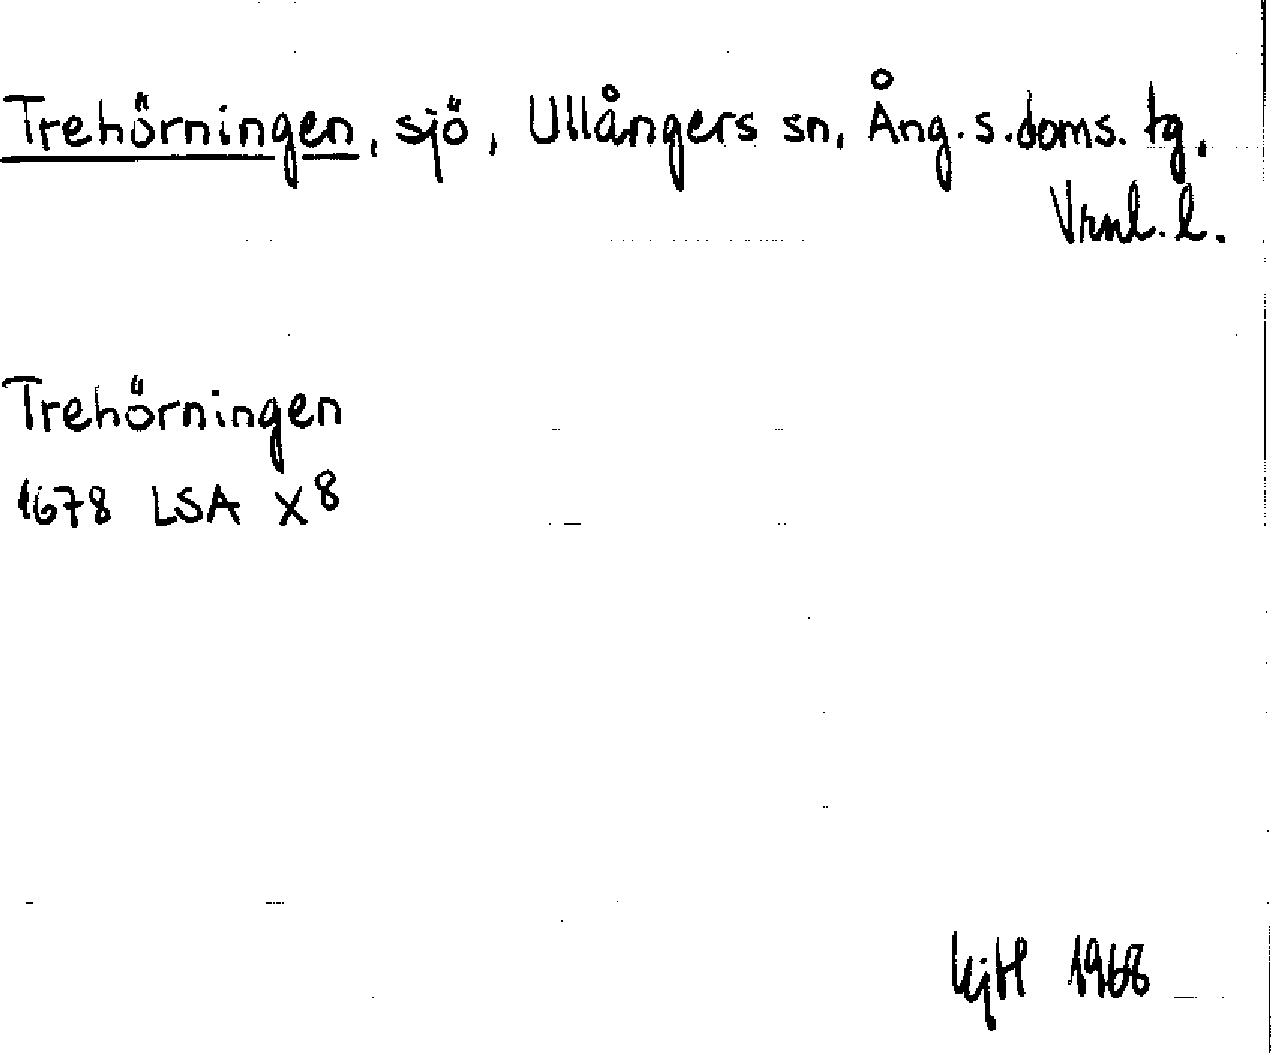 Trehörningen, sjö, Ullångers sn, Ång. s. doms. tg,
Vrnl. l.
Trehörningen
1678 LSA X 8
KjH 1968